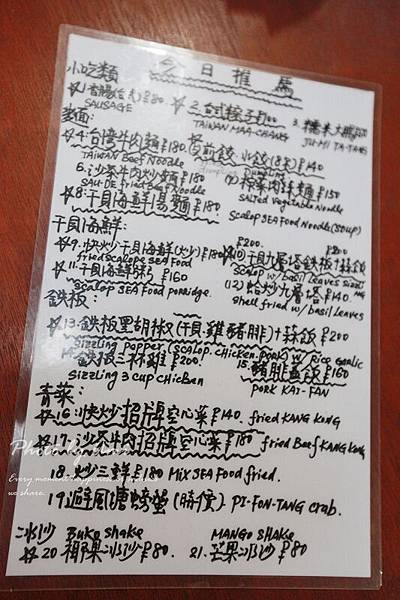 今日推薦
小吃類
☆1.香腸(台式)₱80 ☆2.台式粽子₱100 3.糯米大腸
SAUSAGE TAIWAN MAA-CHANG JU-MI TA-TANG
麵:
☆4.台湾牛肉麵₱180 煎餃 水餃(8来)₱140
TAIWAN Beef Noodle Dumpling
6.沙茶牛肉炒麵₱180 榨菜肉絲麵₱150
SAU-DE fried Beef Noodle SALTED Vegetable Noodle
☆8.干貝海鮮湯麵₱180 Scalop SEA Food Noodle (Soup)
干貝海鮮: ₱200. ₱200
☆9.快炒干貝海鮮(炒)₱180 (10)干貝九層塔鉄板+蒜飯
fried scalops SEA Food Scalop w/ basil leaves sizzling
☆11.干貝海鮮粥₱160 (12)蛤炒九層塔₱140.
Scalop SEA Food porridge. shell fried w/ basil leaves
鉄板:
☆13.鉄板黑胡椒(干貝.雞.豬排)+蒜飯₱200
Sizzling papper (Scalop.chicken.pork) w/ Rice Garlic
鉄板三杯雞₱200. 15.豬排蓋飯₱160
Sizzling 3 cup chicken PORK KAI-FAN
青菜:
☆16.快炒招牌空心菜₱140. fried KANG KONG
☆17.沙茶牛肉招牌空心菜₱180 fried Beef KANG KONG
Every moment
we share.
18.炒三鮮₱180 Mix SEA Food fried.
19.避風塘螃蟹(時價). PI-FON-TANG crab.
冰沙 Buko shake MANGO SHAKE
☆20 椰果冰沙₱80. 21.芒果冰沙₱80